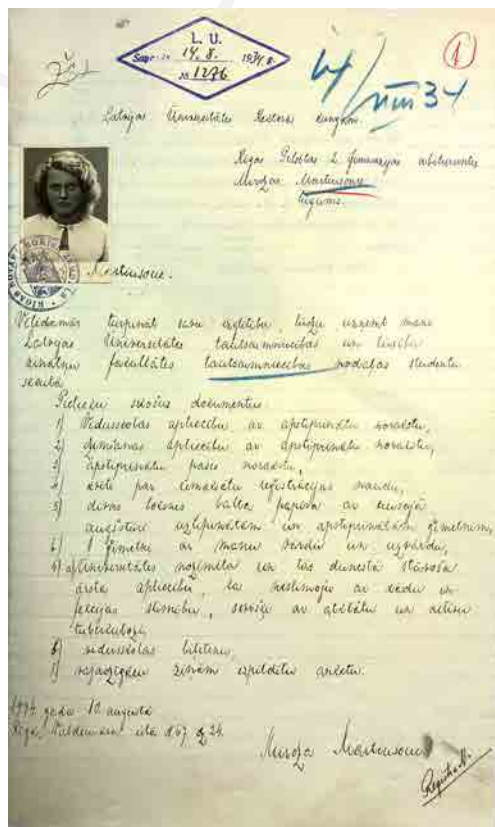 L. U.
Saņ. 14. 8. 1934. g.
№ 1276
1
Latvijas Universitātes Rektora kungam.
Rīgas pilsētas 2. ģimnāzijas abiturientes
Mirdzas Martinsone
lūgums.
Martinsone.
Vēlēdamās turpināt savu izglītību, lūdzu uzņemt mani
Latvijas Universitātes tautsaimniecības un tiesību
zinātņu fakultātes tautsaimniecības nodaļas studentu
skaitā
Pielieku sekošus dokumentus:
1) Vidusskolas apliecību ar apstiprinātu norakstu,
2) dzimšanas apliecību ar apstiprinātu norakstu,
3) apstiprinātu pases norakstu,
4) kvīti par iemaksātu reģistrācijas naudu,
5) divas loksnes balta papīra ar kreisajā
augšstūrī uzlīpinātām un apstiprinātām ģīmetnēm,
6) 1 ģīmetni ar manu vārdu un uzvārdu,
7) Universitātes nozīmēta un tās dienestā stāvoša
ārsta apliecību, ka neslimoju ar
slimību, sevišķi ar atklātu un aktīvu
tuberkulozi,
8) vidusskolas biļetenu,
9) vajadzīgām ziņām izpildītu anketu.
1934. gada 10. augustā
Rīgā, Valdemāra ielā № 67 dz. 24.
Mirdza Martinsone